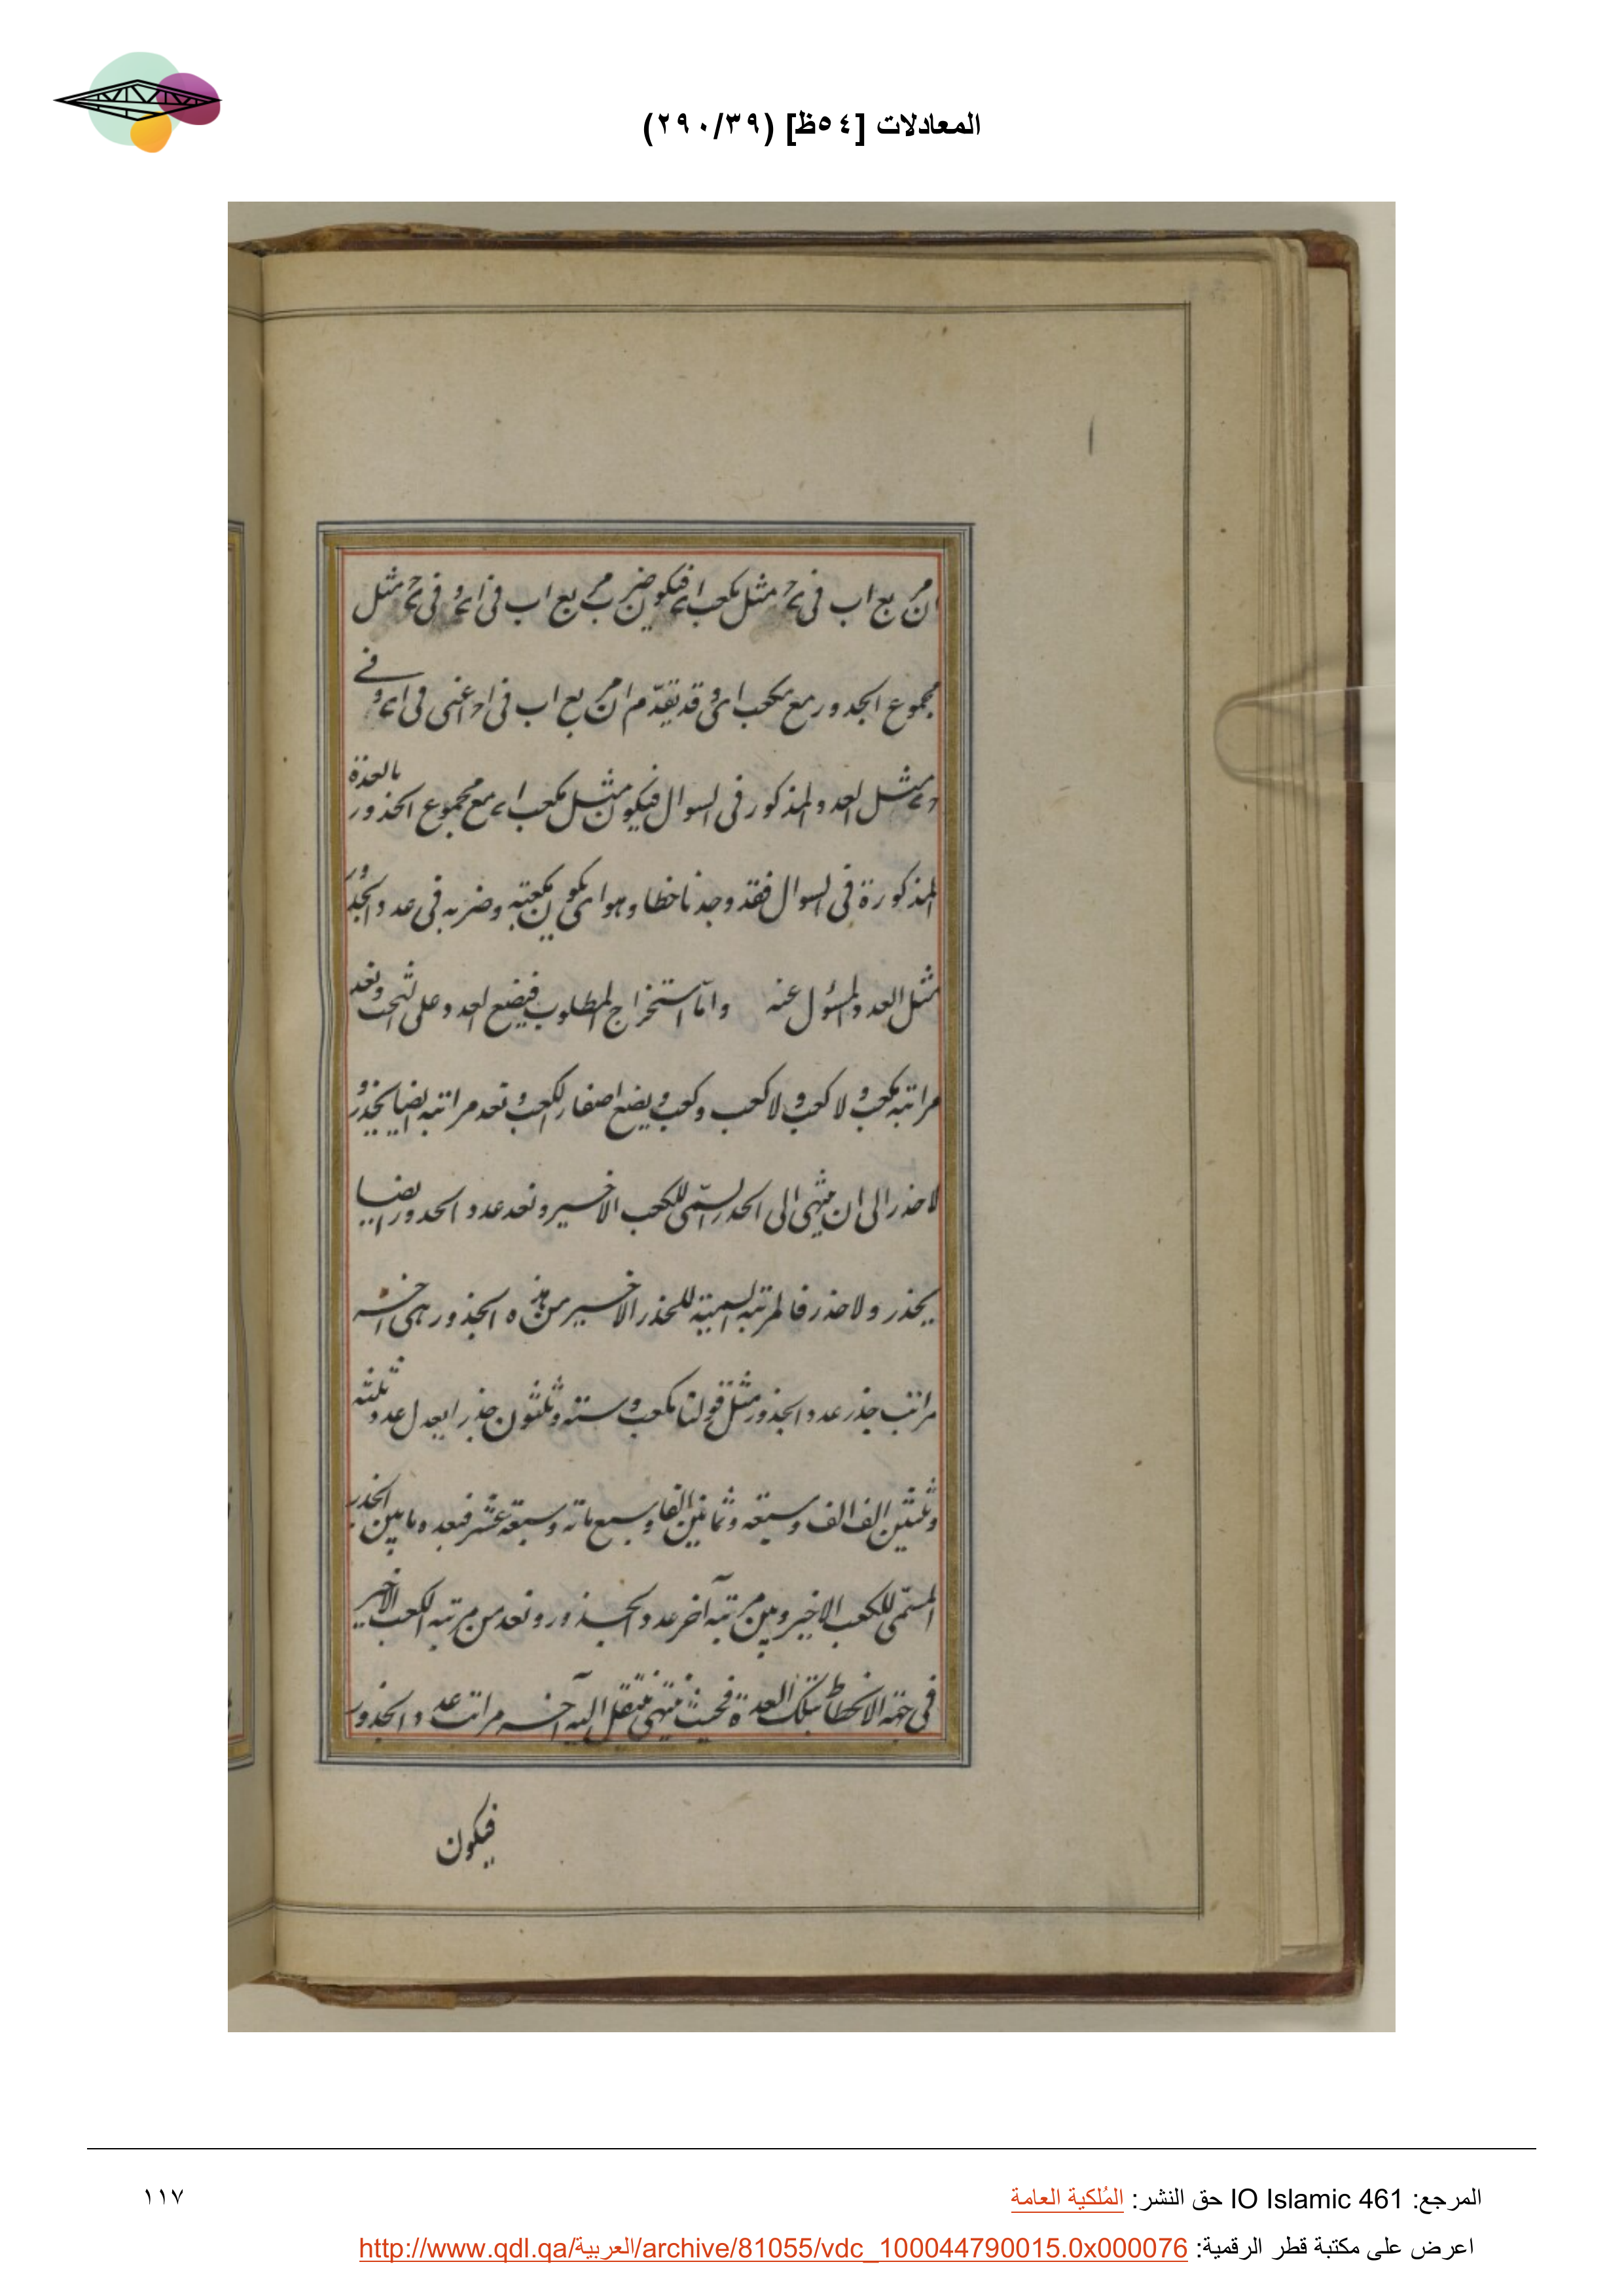 المعادلات [٥٤ظ] (٢٩٠/٣٩)
ان مربع اب في مثل مكعب فيكون ضرب مربع اب في وفي مثل
مجموع الجدور مع مكعب وقد تقدّم ان مربع اب في اعنى في وفے
مثل العدد المذكور فى السوال فيكون مثل مكعب مع مجموع الجذور بالعدة
المذكورة فى السوال فقد وجدنا خطا وهو يكون مكعبه وضربه فى عدد الجذور
مثل العدد المسؤل عنه واما استخراج المطلوب فيضع العدد على التخت ونعد
مراتبه مكعب ولا كعب ولا كعب وكعب ويضع اصفار الكعب ونعد مراتبه ايضا بجذر و
لا حذر الى ان ينتهى الى الحدر السمّى للكعب الاخير ونعد عدد الحدور ايضا
بحذر ولا حذر فالمرتبه السمية للحذر الاخير من هذه الجذور هى اخر
مراتب جذر عدد الجذور مثل قولنا مكعب وستة وثلثون جذرا يعدل عدد ثلثه
وثلثين الف الف وسبعه وثمانين الفا وسبع مائه وسبعة عشر فبعده ما بين الجذر
المسمّى للكعب الاخير وبين مرتبه آخر عدد الجذور ونعد من مرتبه الكعب الاخير
فى جهة الانحطاط بتلك العدة فحيث ينتهى ينقل اليه آخر مراتب عدد الجذور
فيكون
المرجع: IO Islamic 461 حق النشر: المُلكية العامة
١١٧
اعرض على مكتبة قطر الرقمية: http://www.qdl.qa/العربية/archive/81055/vdc_100044790015.0x000076